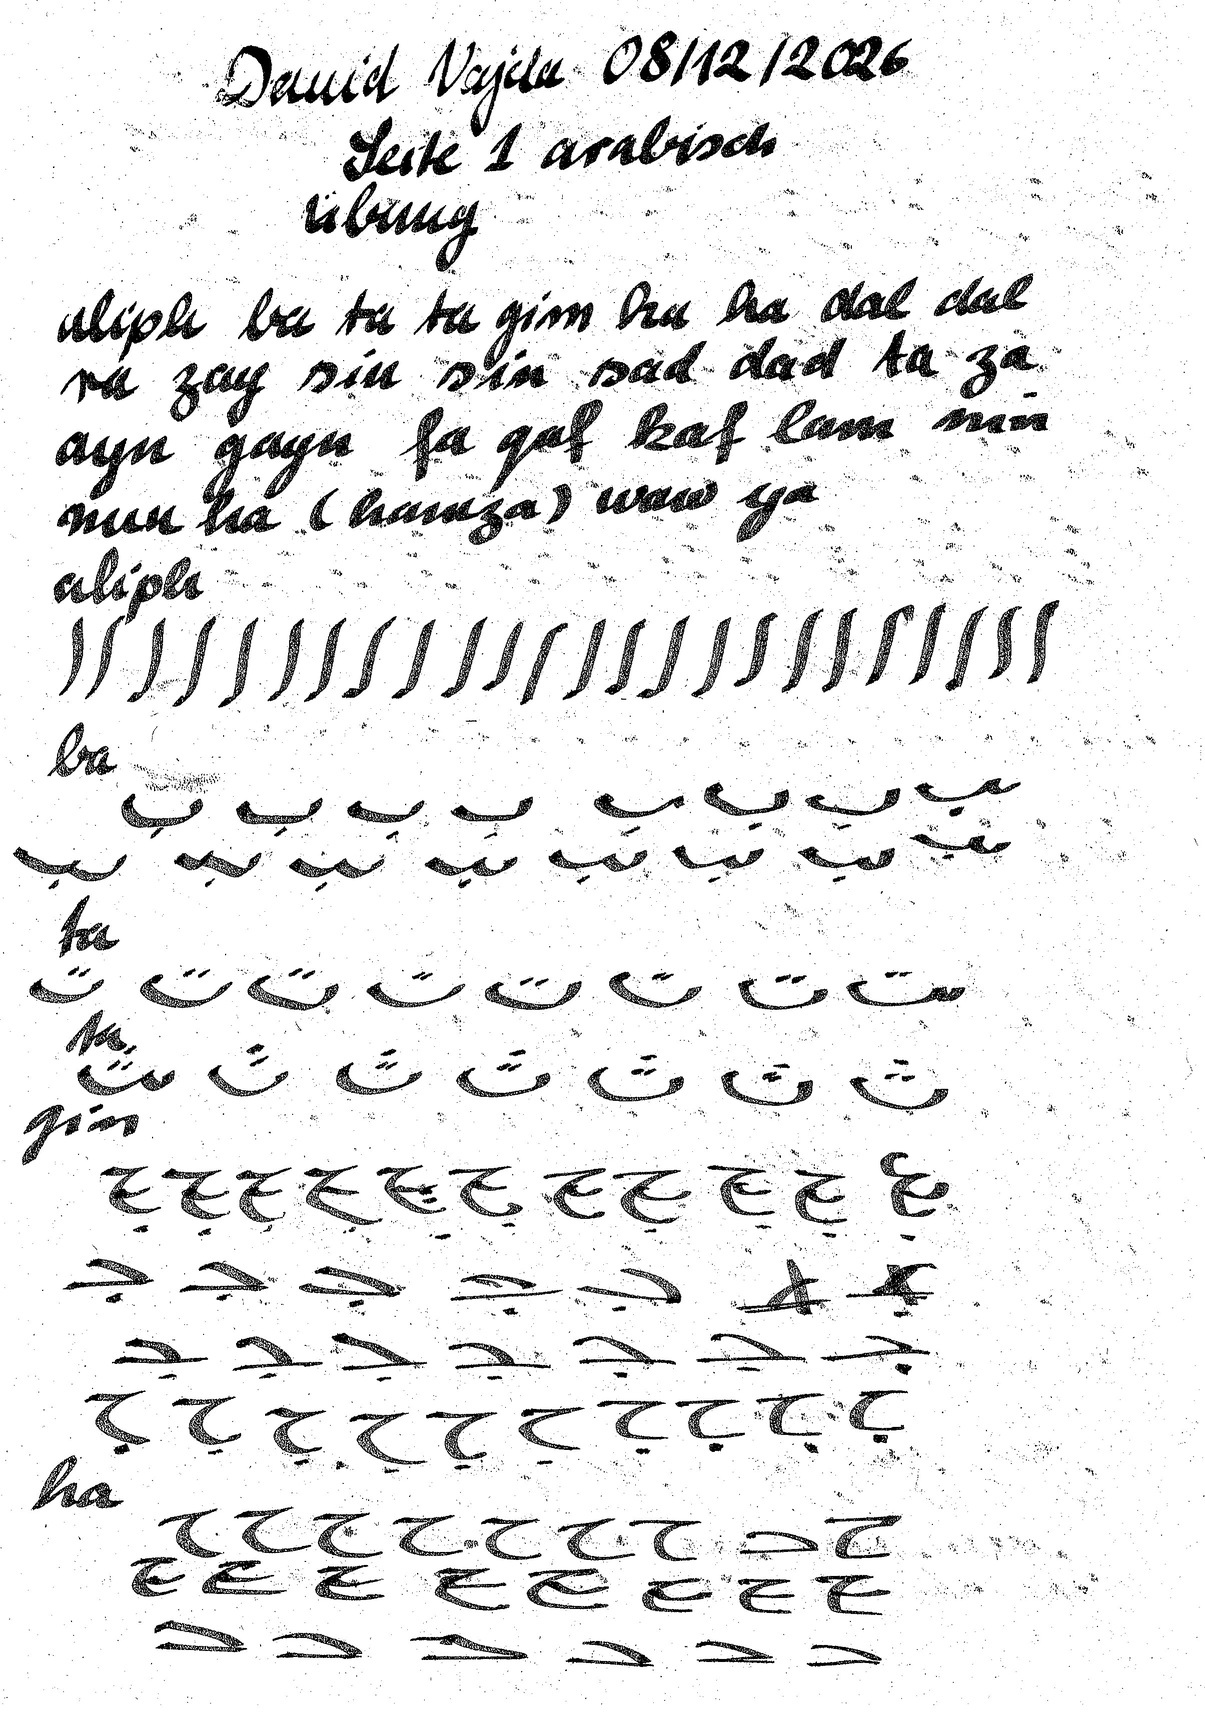 David Vajda 08/12/2026
Seite 1 arabisch
Übung
aliph ba ta ta gim ha ha dal dal
ra zay sin sin sad dad ta za
ayn gayn fa qaf kaf lam min
nun ha (hamza) waw ya
aliph
ا ا ا ا ا ا ا ا ا ا ا ا ا ا ا ا ا ا ا ا ا ا ا
ba
ب ب ب ب ب ب ب ب
ب ب ب ب ب ب ب ب
ta
ت ت ت ت ت ت ت ت
ta
ث ث ث ث ث ث ث
gim
ج ج ج ج ج ج ج ج ج ج ج
جـ جـ جـ جـ جـ
ـجـ ـجـ ـجـ ـجـ ـجـ ـجـ ـجـ
ج ج ج ج ج ج ج ج ج ج
ha
ح ح ح ح ح ح ح حـ ح
ح ح ح ح ح ح ح ح
حـ حـ حـ حـ حـ حـ